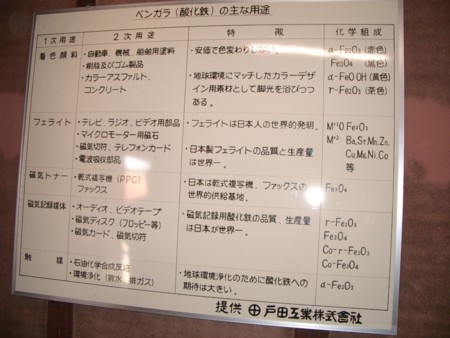 ベンガラ（酸化鉄）の主な用途
1次用途 2次用途 特徴 化学組成
着色顔料
・自動車、機械、船舶用塗料
・樹脂及びゴム製品
・カラーアスファルト、
コンクリート
・安価で色変わりしない。
・地球環境にマッチしたカラーデザイ
ン用素材として脚光を浴びつつ
ある。
α-Fe₂O₃（赤色）
Fe₃O₄（黒色）
α-FeOOH（黄色）
r-Fe₂O₃（茶色）
フェライト
・テレビ、ラジオ、ビデオ用部品
・マイクロモーター用磁石
・磁気切符、テレフォンカード
・電波吸収部品
・フェライトは日本人の世界的発明。
・日本製フェライトの品質と生産量
は世界一。
M⁺²O Fe₂O₃
M⁺² Ba,Sr,Mn,Zn,
Cu,Mg,Ni,Co
等
磁気トナー
・乾式複写機（PPC）
ファックス
・日本は乾式複写機、ファックスの
世界的供給基地。
Fe₃O₄
磁気記録媒体
・オーディオ、ビデオテープ
・磁気ディスク（フロッピー等）
・磁気カード、磁気切符
・磁気記録用酸化鉄の品質、生産量
は日本が世界一。
r-Fe₂O₃
Fe₃O₄
Co-r-Fe₂O₃
Co-Fe₃O₄
触媒
・石油化学合成反応
・環境浄化（排水、排ガス）
・地球環境浄化のために酸化鉄への
期待は大きい。
α-Fe₂O₃
提供 戸田工業株式會社